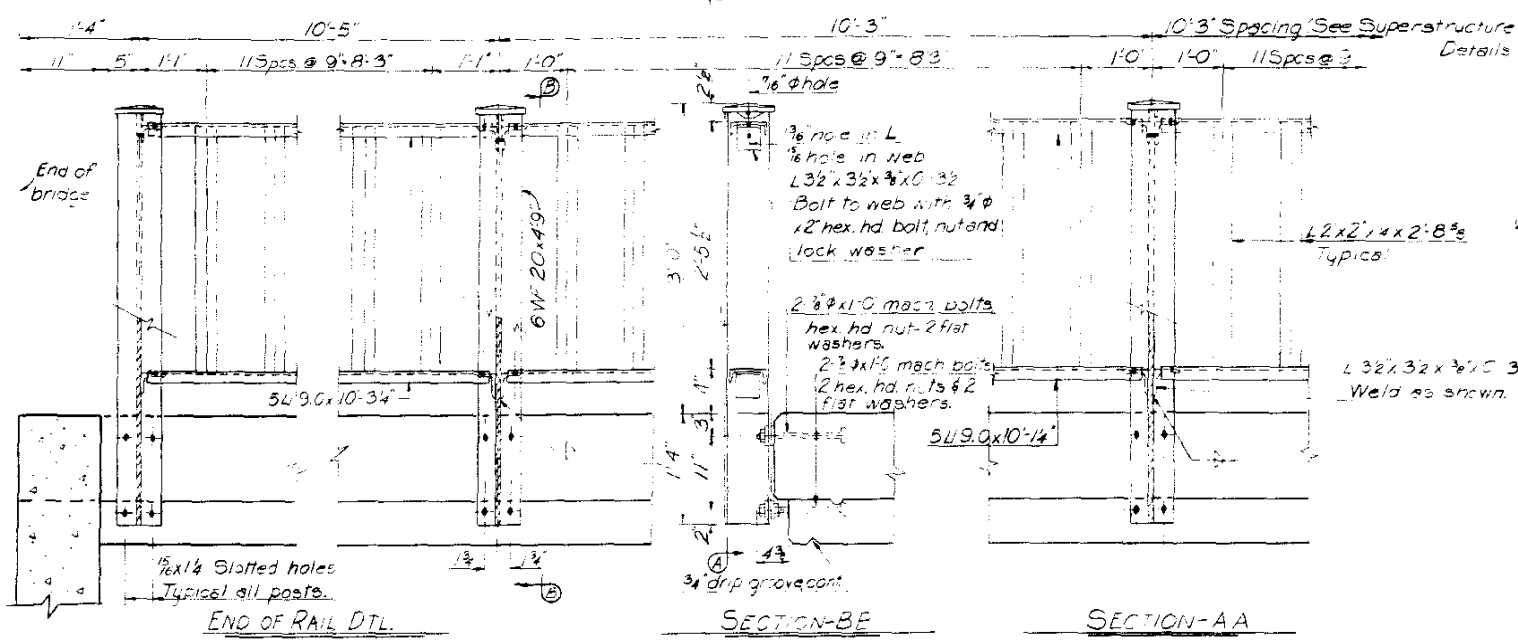 1'-4"
10'-5"
10'-3"
10'-3" Spacing See Superstructure
Details
11"
5"
1'-1"
11 Spcs. @ 9" = 8'-3"
1'-1"
1'-0"
11 Spcs @ 9" = 8'3"
1'-0"
1'-0"
11 Spcs @ 9
B
7/16" Φ hole
End of
bridge
hole in L
hole in web
L 3½" x 3½" x ⅜" x 0'-3½
Bolt to web with ¾" Φ
x 2" hex. hd. bolt, nut and
lock washer
6W-20x4'9"
3'-0"
2'-5½"
L 2 x 2" x ¼ x 2'-8⅝
Typical
mach. bolts
hex. hd. nut - 2 flat
washers.
mach. bolts
2 hex. hd. nuts & 2
flat washers.
4"
3"
1'4"
11"
2"
L 3½" x 3½ x ⅜" x 0'-3
Weld as shown.
5⊔9.0x10'-3¼"
5⊔9.0x10'-1¼"
15/16 x 1¼ Slotted holes
Typical all posts.
1¾"
1¾"
B
A
4¾
¾" drip groove cont.
END OF RAIL DTL.
SECTION-BB
SECTION-AA